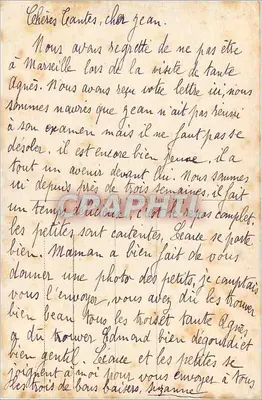 Chères Tantes, cher Jean.
Nous avons regretté de ne pas être
à Marseille lors de la visite de tante
Agnès. Nous avons reçu votre lettre ici, nous
sommes navrées que Jean n'ait pas réussi
à son examen mais il ne faut pas se
désoler, il est encore bien jeune, il a
tout un avenir devant lui. Nous sommes
ici depuis près de trois semaines, il fait
un temps pas complet,
les petites sont contentes, se porte
bien. Maman a bien fait de vous
donner une photo des petits, je comptais
vous l'envoyer, vous avez dû les trouver
bien beau tous les trois et tante Agnès
a dû trouver Edmond bien dégourdi et
bien gentil. et les petites se
joignent à moi pour vous envoyer à tous
les trois de bons baisers. Suzanne
CRAPHIL